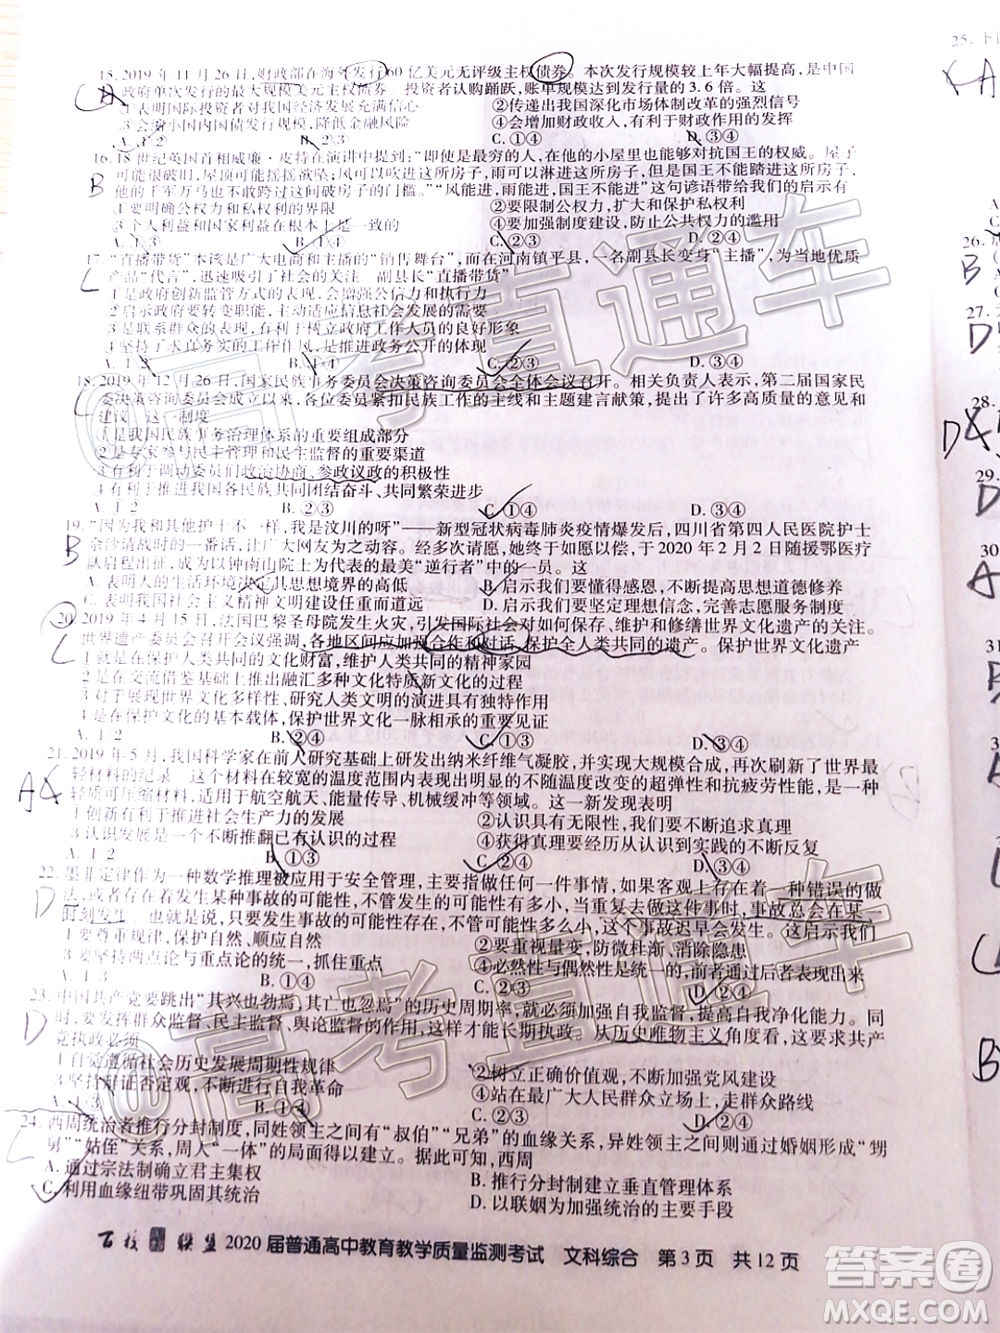 15. 2019 年 11 月 26 日,财政部在海外发行 60 亿美元无评级主权债券。本次发行规模较上年大幅提高,是中国
政府单次发行的最大规模美元主权债券。投资者认购踊跃,账单规模达到发行量的 3.6 倍。这
①表明国际投资者对我国经济发展充满信心 ②传递出我国深化市场体制改革的强烈信号
③会缩小国内国债发行规模,降低金融风险 ④会增加财政收入,有利于财政作用的发挥
A. ①② B. ②③ C. ①④ D. ③④
16. 18 世纪英国首相威廉·皮特在演讲中提到:“即使是最穷的人,在他的小屋里也能够对抗国王的权威。屋子
可能很破旧,屋顶可能摇摇欲坠;风可以吹进这所房子,雨可以淋进这所房子,但是国王不能踏进这所房子,
他的千军万马也不敢跨过这间破房子的门槛。”“风能进,雨能进,国王不能进”这句谚语带给我们的启示有
①要明确公权力和私权利的界限 ②要限制公权力,扩大和保护私权利
③个人利益和国家利益在根本上是一致的 ④要加强制度建设,防止公共权力的滥用
A. ①③ B. ①④ C. ②③ D. ②④
17. “直播带货”本该是广大电商和主播的“销售舞台”,而在河南镇平县,一名副县长变身“主播”,为当地优质
产品“代言”,迅速吸引了社会的关注。副县长“直播带货”
①是政府创新监管方式的表现,会增强公信力和执行力
②启示政府要转变职能,主动适应信息社会发展的需要
③是联系群众的表现,有利于树立政府工作人员的良好形象
④坚持了求真务实的工作作风,是推进政务公开的体现
A. ①② B. ①④ C. ②③ D. ③④
18. 2019 年 12 月 26 日,国家民族事务委员会决策咨询委员会全体会议召开。相关负责人表示,第二届国家民
族委决策咨询委员会成立以来,各位委员紧扣民族工作的主线和主题建言献策,提出了许多高质量的意见和
建议。这一制度
①是我国民族事务治理体系的重要组成部分
②是专家参与民主管理和民主监督的重要渠道
③有利于调动委员们政治协商、参政议政的积极性
④有利于推进我国各民族共同团结奋斗、共同繁荣进步
A. ①② B. ②③ C. ①④ D. ③④
19. “因为我和其他护士不一样,我是汶川的呀”——新型冠状病毒肺炎疫情爆发后,四川省第四人民医院护士
佘沙请战时的一番话,让广大网友为之动容。经多次请愿,她终于如愿以偿,于 2020 年 2 月 2 日随援鄂医疗
队启程出征,成为以钟南山院士为代表的最美“逆行者”中的一员。这
A. 表明人的生活环境决定其思想境界的高低 B. 启示我们要懂得感恩,不断加强思想道德修养
C. 表明我国社会主义精神文明建设任重而道远 D. 启示我们要坚定理想信念,完善志愿服务制度
20. 2019 年 4 月 15 日,法国巴黎圣母院发生火灾,引发国际社会对如何保存、维护和修缮世界文化遗产的关注。
世界遗产委员会召开会议强调,各地区间应加强合作和对话,保护全人类共同的遗产。保护世界文化遗产
①就是在保护人类共同的文化财富,维护人类共同的精神家园
②是在交流借鉴基础上推出融汇多种文化特质新文化的过程
③对于展现世界文化多样性,研究人类文明的演进具有独特作用
④是在保护文化的基本载体,保护世界文化一脉相承的重要见证
A. ①② B. ②④ C. ①③ D. ③④
21. 2019 年 5 月,我国科学家在前人研究基础上研发出纳米纤维气凝胶,并实现大规模合成,再次刷新了世界最
轻材料的纪录。这个材料在较宽的温度范围内表现出明显的不随温度改变的超弹性和抗疲劳性能,是一种
轻质可压缩材料,适用于航空航天、能量传导、机械缓冲等领域。这一新发现表明
①创新有利于推进社会生产力的发展 ②认识具有无限性,我们要不断追求真理
③认识发展是一个不断推翻已有认识的过程 ④获得真理要经历从认识到实践的不断循环
A. ①② B. ①③ C. ②④ D. ③④
22. 墨菲定律作为一种数学推理被应用于安全管理,主要内容是同一件事情,如果客观上存在着一种错误的做
法,或者存在着发生某种事故的可能性,不管发生的可能性有多小,当重复去做这件事时,事故总会在某一
时刻发生。也就是说,只要发生事故的可能性存在,不管可能性多么小,这个事故迟早会发生。这启示我们
①要尊重规律,保护自然、顺应自然 ②要重视量变,防微杜渐、消除隐患
③要坚持两点论与重点论的统一,抓住重点 ④必然性与偶然性
A. ①② B. ①③ C. ②④ D. ③④
23. 中国共产党要跳出“其兴也勃焉,其亡也忽焉”的历史周期率,就必须加强自我革命、自我净化能力。同
时,要发挥群众监督、民主监督、舆论监督的作用,不断增强党的执政本领。从历史唯物主义角度看,要求共产
党执政必须
①自觉遵循社会历史发展周期性规律 ②树立正确价值观,不断加强党风建设
③坚持辩证否定观,不断进行自我革命 ④站在最广大人民群众立场上,走群众路线
A. ①③ B. ①④ C. ②③ D. ②④
24. 西周统治者推行分封制度,同姓领主之间有“叔伯”“兄弟”的血缘关系,异姓领主之间则通过婚姻形成“甥
舅”“姑侄”关系,周人“一体”的局面得以建立。据此可知,西周
A. 通过宗法制确立君主集权 B. 推行分封制建立垂直管理体系
C. 利用血缘纽带巩固其统治 D. 以联姻为主推行分封制度
百校联盟 2020 届普通高中教育教学质量监测考试 文科综合 第 3 页 共 12 页
@高考直通车
@高考直通车
答案圈
MXQE.COM